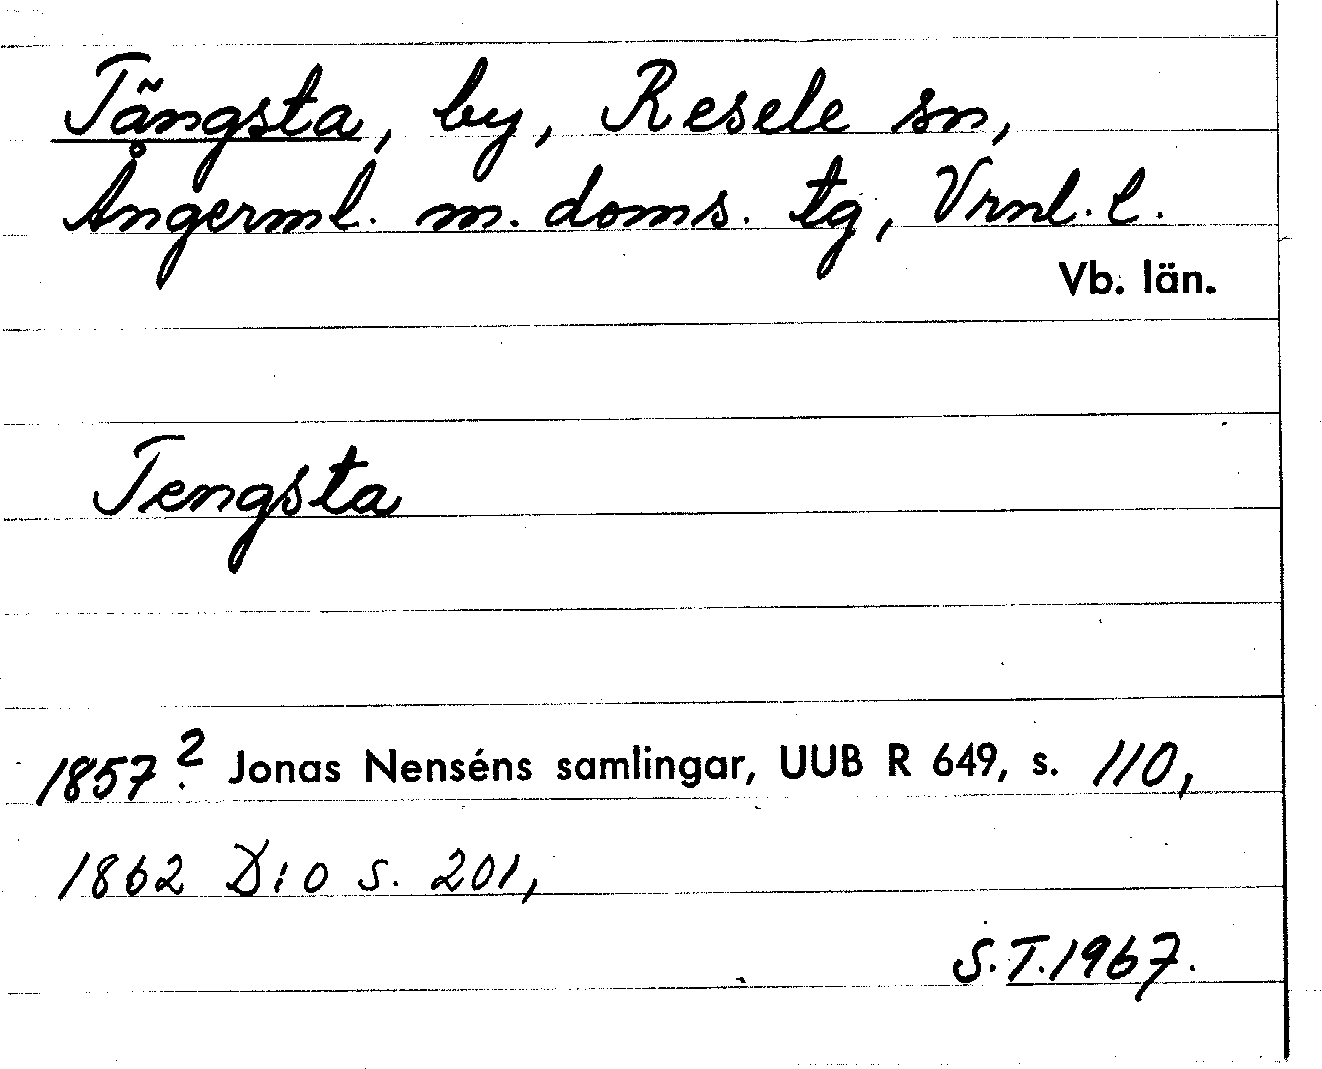 Tängsta, by, Resele sn,
Ångerml. m. doms. tg, Vrnl. l.
Vb. län.
Tengsta
1857? Jonas Nenséns samlingar, UUB R 649, s. 110,
1862 D:o s. 201,
S.T.1967.